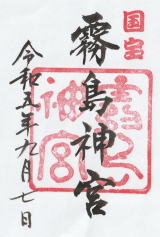 国宝
霧島神宮
令和五年九月七日
霧島
神宮